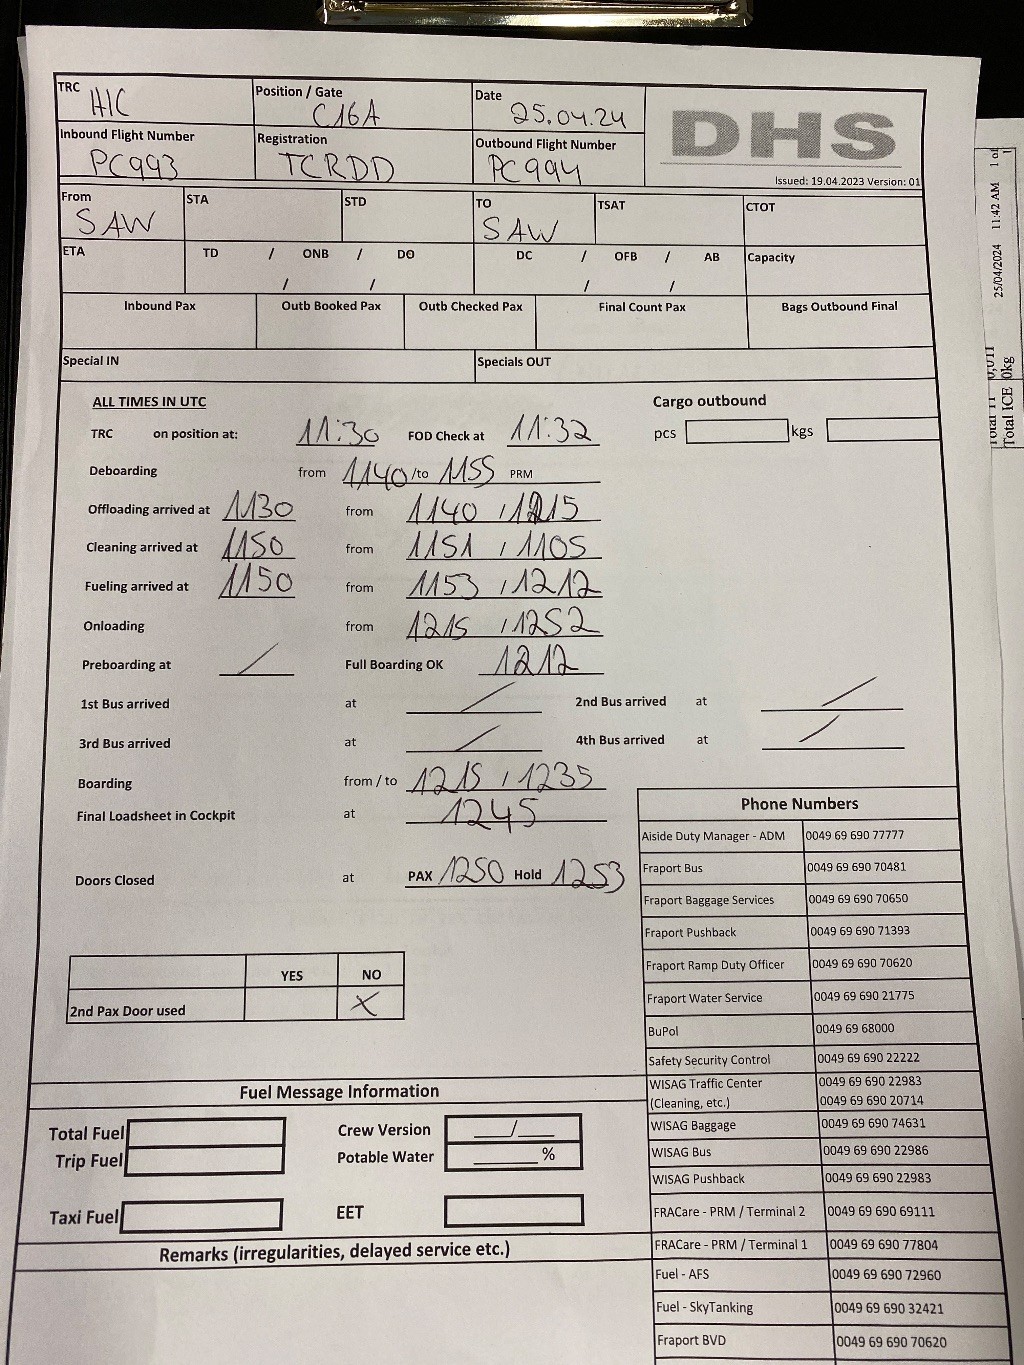 TRC HIC Position / Gate C16A Date 25.04.24 DHS
Inbound Flight Number PC993 Registration TCRDD Outbound Flight Number PC994
Issued: 19.04.2023 Version: 01
From SAW STA STD TO SAW TSAT CTOT
ETA TD / ONB / DO DC / OFB / AB Capacity
/ / / /
Inbound Pax Outb Booked Pax Outb Checked Pax Final Count Pax Bags Outbound Final
Special IN Specials OUT
ALL TIMES IN UTC Cargo outbound
TRC on position at: 11:30 FOD Check at 11:32 pcs kgs
Deboarding from 1140 /to 1155 PRM
Offloading arrived at 1130 from 1140 / 1215
Cleaning arrived at 1150 from 1151 / 1105
Fueling arrived at 1150 from 1153 / 1212
Onloading from 1215 / 1252
Preboarding at / Full Boarding OK 1212
1st Bus arrived at / 2nd Bus arrived at /
3rd Bus arrived at / 4th Bus arrived at /
Boarding from / to 1215 / 1235
Final Loadsheet in Cockpit at 1245
Doors Closed at PAX 1250 Hold 1253
YES NO
2nd Pax Door used X
Phone Numbers
Aiside Duty Manager - ADM 0049 69 690 77777
Fraport Bus 0049 69 690 70481
Fraport Baggage Services 0049 69 690 70650
Fraport Pushback 0049 69 690 71393
Fraport Ramp Duty Officer 0049 69 690 70620
Fraport Water Service 0049 69 690 21775
BuPol 0049 69 68000
Safety Security Control 0049 69 690 22222
WISAG Traffic Center 0049 69 690 22983
(Cleaning, etc.) 0049 69 690 20714
WISAG Baggage 0049 69 690 74631
WISAG Bus 0049 69 690 22986
WISAG Pushback 0049 69 690 22983
FRACare - PRM / Terminal 2 0049 69 690 69111
FRACare - PRM / Terminal 1 0049 69 690 77804
Fuel - AFS 0049 69 690 72960
Fuel - SkyTanking 0049 69 690 32421
Fraport BVD 0049 69 690 70620
Fuel Message Information
Total Fuel Crew Version ___/___
Trip Fuel Potable Water ______%
Taxi Fuel EET
Remarks (irregularities, delayed service etc.)
25/04/2024 11:42 AM 1 of 1
Total ICE 0kg